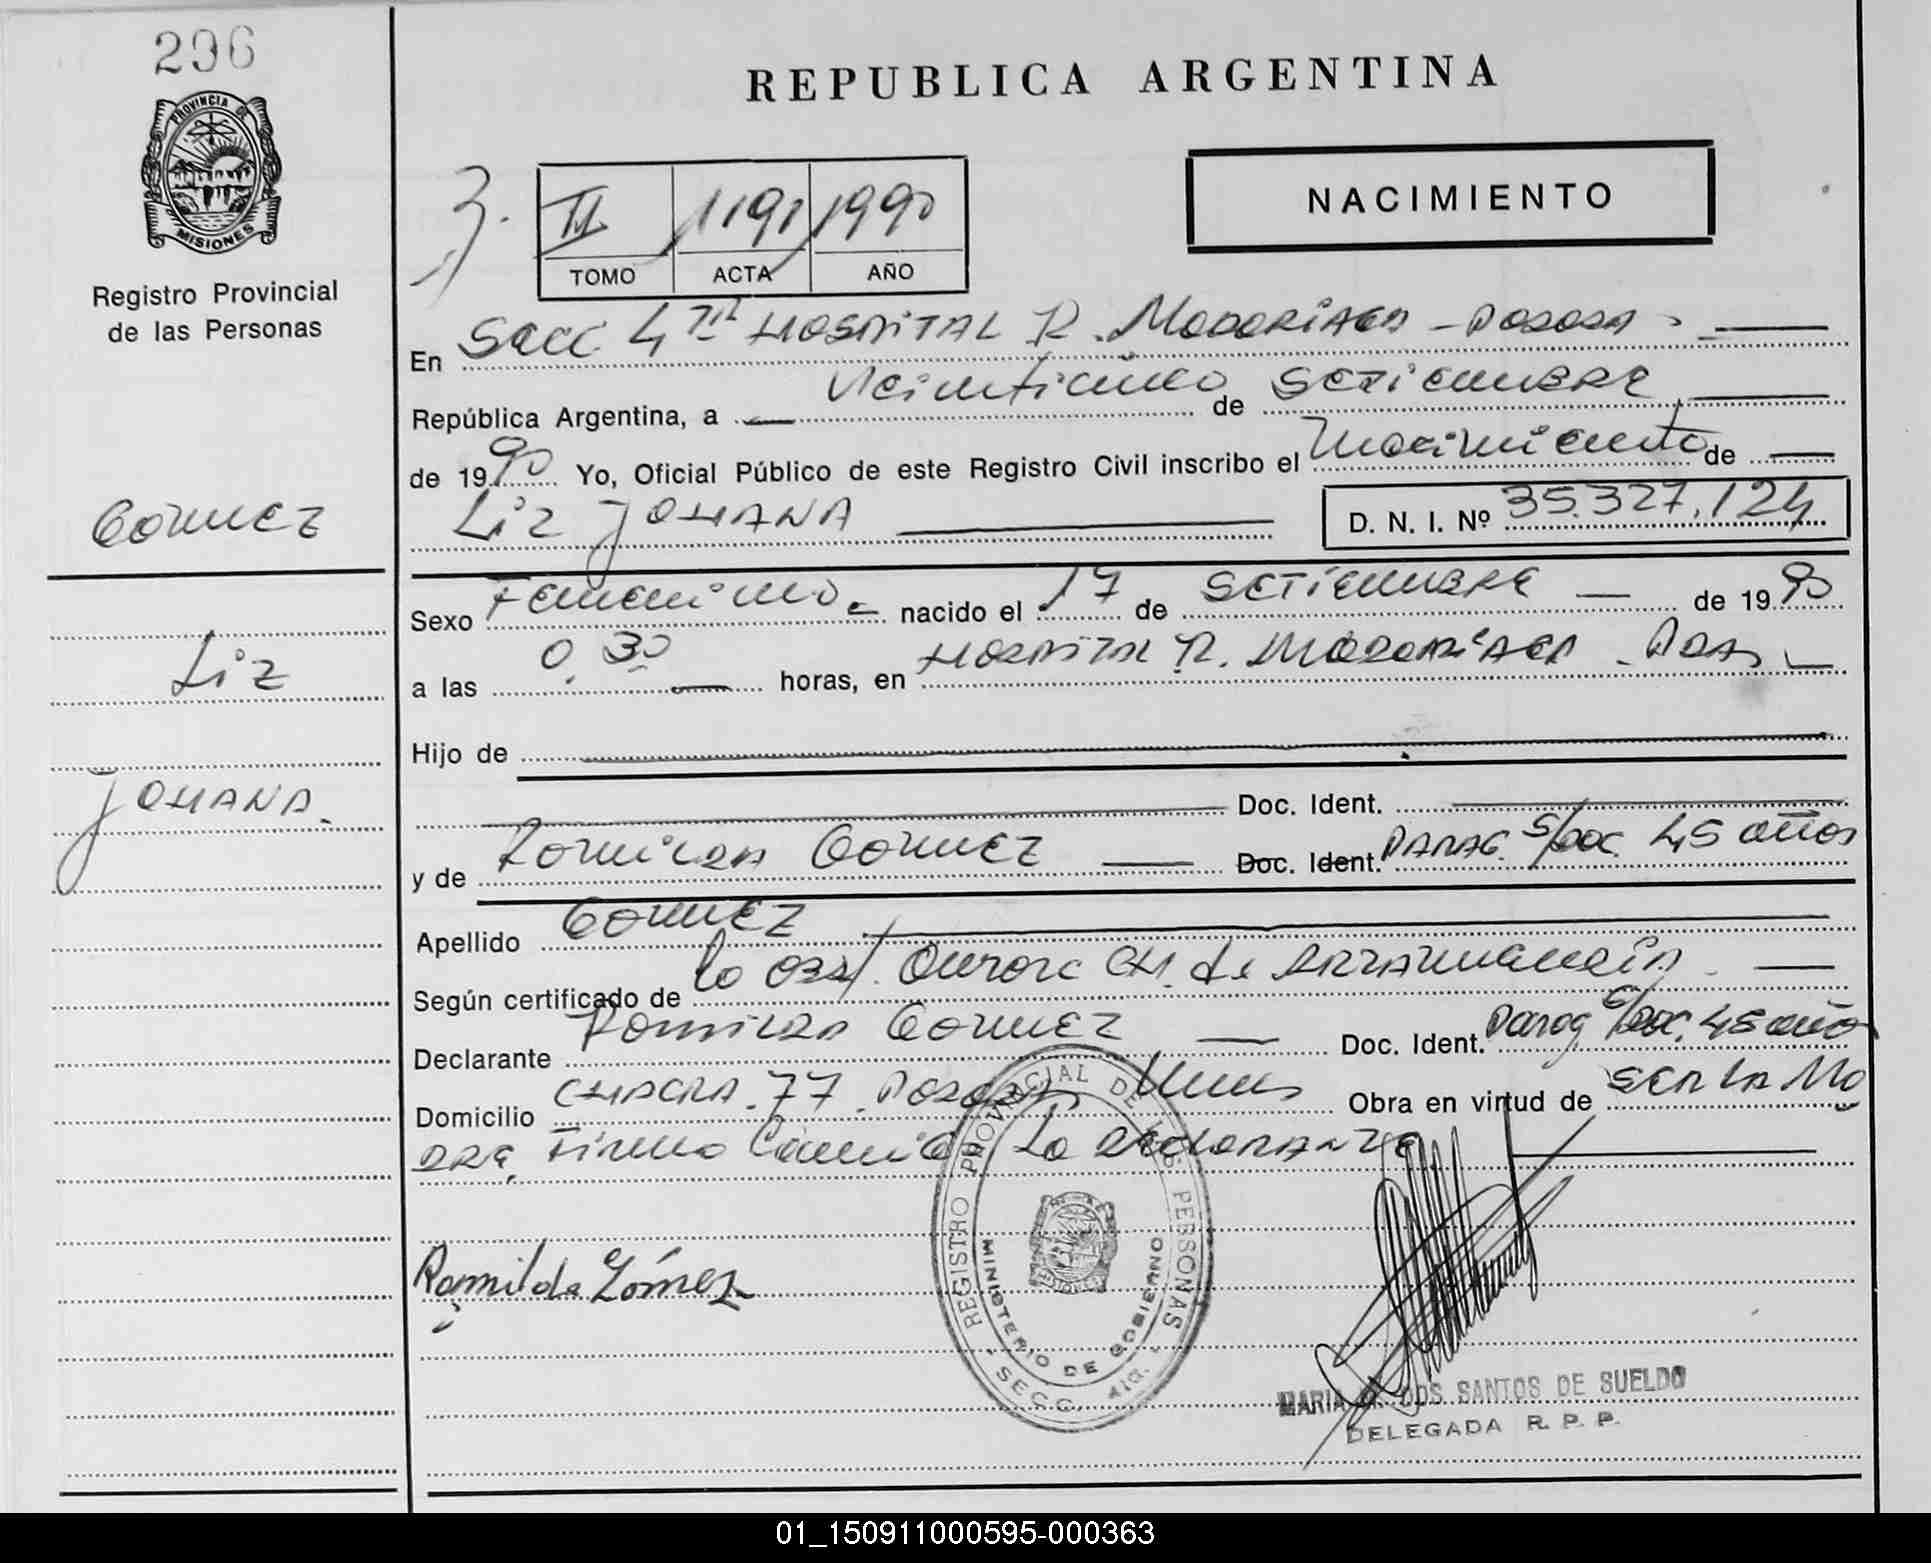 296
REPUBLICA ARGENTINA
PROVINCIA DE
MISIONES
Registro Provincial
de las Personas
3.
II 1191 1990
TOMO ACTA AÑO
NACIMIENTO
En Secc 4ta HOSPITAL R. MADARIAGA - POSADAS
República Argentina, a veinticinco de SETIEMBRE
de 1990 Yo, Oficial Público de este Registro Civil inscribo el nacimiento de
GOMEZ
LIZ JOHANA D. N. I. Nº 35.327.124
Sexo Femenino nacido el 17 de SETIEMBRE de 1990
LIZ
a las 0.30 horas, en HOSPITAL R. MADARIAGA - Pdas
Hijo de
JOHANA
Doc. Ident.
y de Romilda GOMEZ Doc. Ident. PARAG. S/DOC. 45 años
Apellido GOMEZ
Según certificado de la Obst. Aurora CH. de
Declarante Romilda GOMEZ Doc. Ident. Parag S/Doc. 45 años
Domicilio CHACRA 77 POSADAS Mnes Obra en virtud de SER LA MA
DRE, Firma la declarante
Romilda Gómez
REGISTRO PROVINCIAL DE LAS PERSONAS
MINISTERIO DE GOBIERNO
SECC. 4ta.
MARIA DOS SANTOS DE SUELDO
DELEGADA R. P. P.
01_150911000595-000363